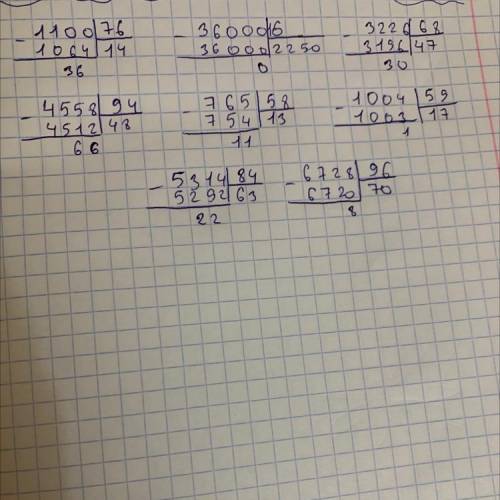 - 1100 | 76 - 36000 | 16 - 3226 | 68
1064 | 14 36000 | 2250 3196 | 47
36 0 30
- 4558 | 94 - 765 | 58 - 1004 | 59
4512 | 48 754 | 13 1003 | 17
66 11 1
- 5314 | 84 - 6728 | 96
5292 | 63 6720 | 70
22 8